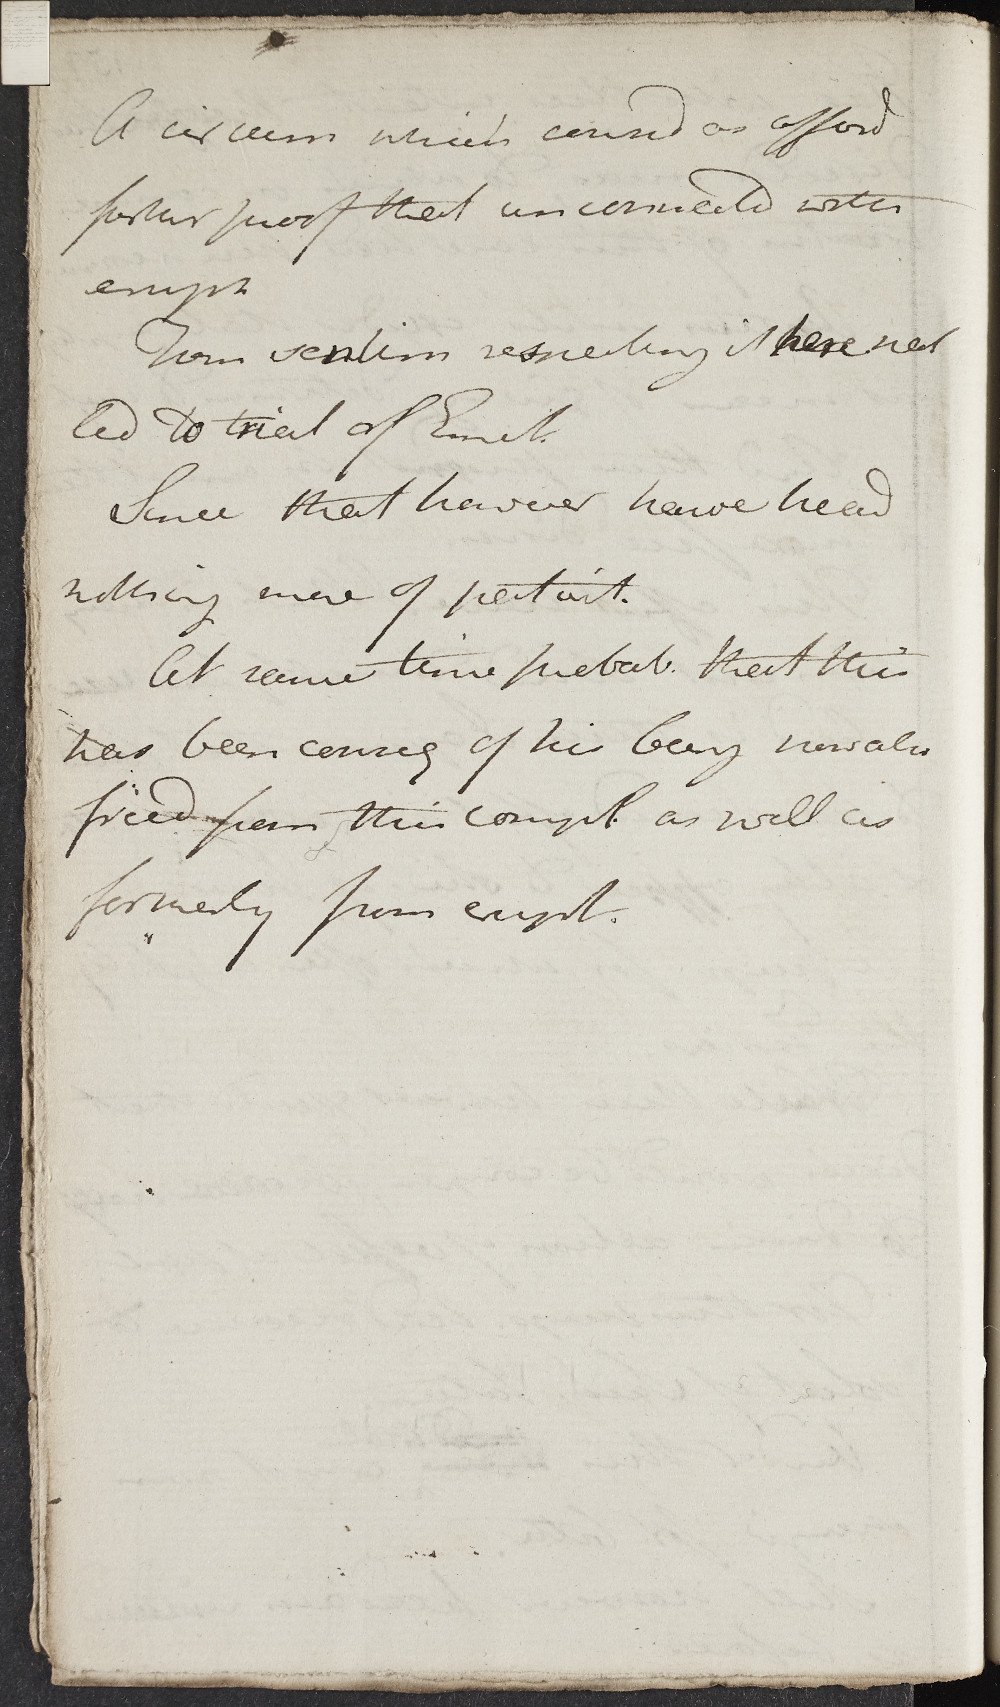 A circum which consid as afford
farther proof that unconnected with
erupt
From sentim respecting it here next
led to trial of Emet.
Since that however have heard
nothing more of patient.
At same time probab. that this
has been conseq of his being now also
freed from this compl. as well as
formerly from erupt.